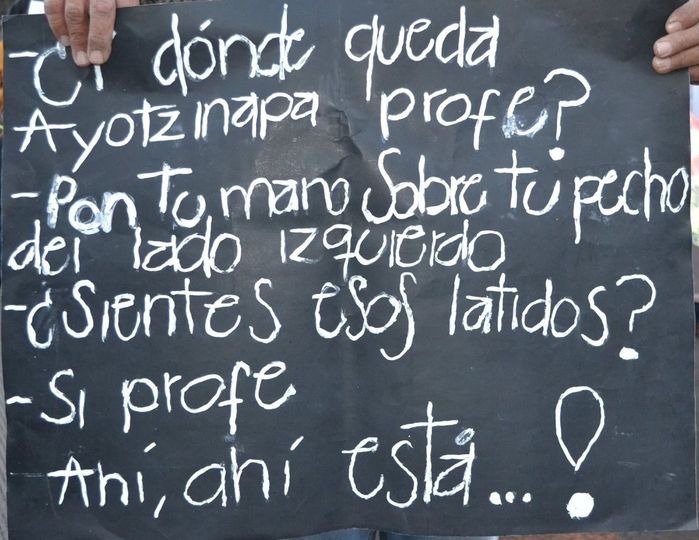 -¿Y dónde queda
Ayotzinapa profe?
-Pon Tu mano sobre tu pecho
del lado izquierdo
-¿Sientes esos latidos?
-Si profe
Ahí, ahí está...!